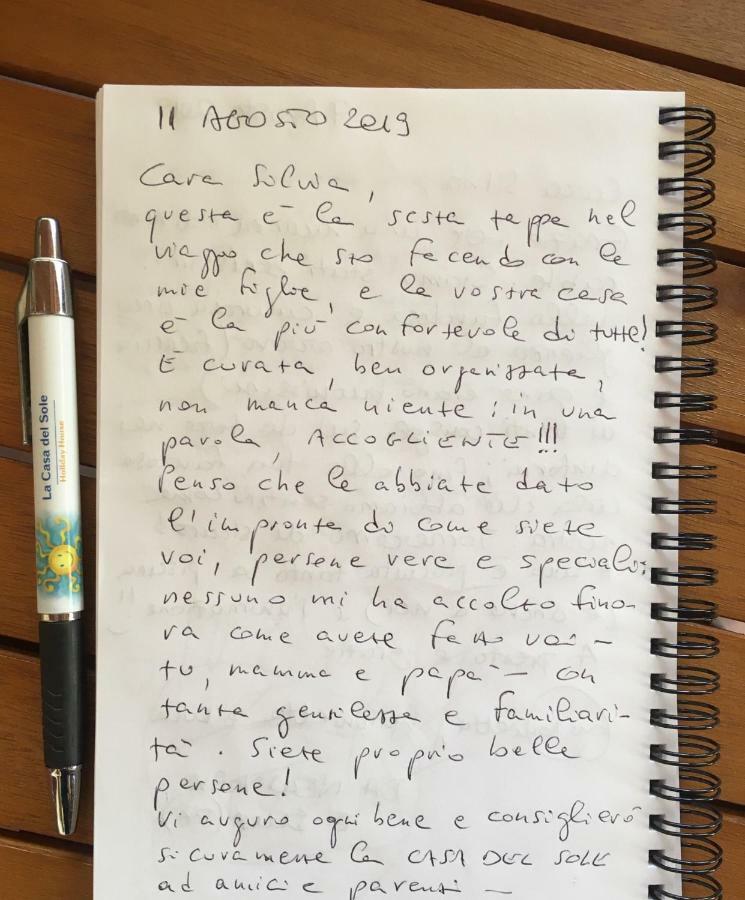 11 AGOSTO 2019
Cara Silvia,
questa è la sesta tappa nel
viaggio che sto facendo con le
mie figlie, e la vostra casa
è la più confortevole di tutte!
È curata, ben organizzata,
non manca niente: in una
parola, ACCOGLIENTE!!!
Penso che le abbiate dato
l'impronta di come siete
voi, persone vere e speciali:
nessuno mi ha accolto fino-
ra come avete fatto voi -
tu, mamma e papà - con
tanta gentilezza e familiari-
tà. Siete proprio belle
persone!
Vi auguro ogni bene e consiglierò
sicuramente la CASA DEL SOLE
ad amici e parenti -
La Casa del Sole
Holiday House